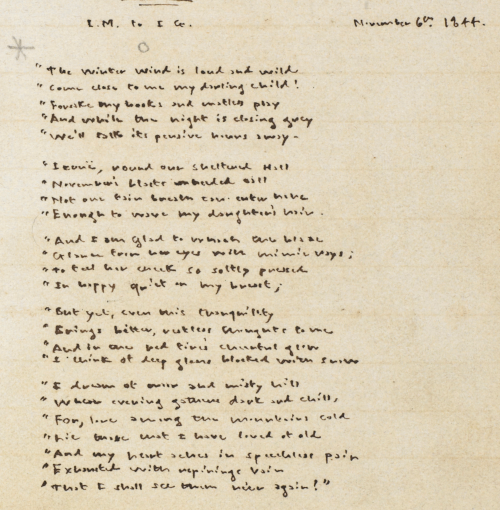 E.M. to I G. November 6th 1844.
"The winter wind is loud and wild
"Come close to me my darling child!
"Forsake thy books and mateless play
"And while the night is closing grey
"We'll talk its pensive hours away-
"Iernë, round our sheltered Hall
"November's blasts unheeded call
"Not one faint breath can enter here
"Enough to wave my daughter's hair.
"And I am glad to watch the blaze
"Glance from her eyes with mimic rays;
"To feel her cheek so softly pressed
"In happy quiet on my breast;
"But yet, even this tranquility
"Brings bitter, restless thoughts to me
"And in the red fire's cheerful glow
"I think of deep glens blocked with snow
"I dream of moor and misty hill
"Where evening gathers dark and chill,
"For, lone among the mountains cold
"Lie those that I have loved of old
"And my heart aches in speechless pain
"Exhausted with repinings vain
"That I shall see them ne'er again!"